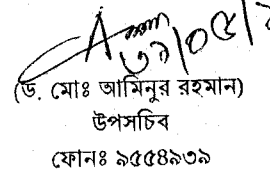 ৩১/০৫/২
(ড. মোঃ আমিনুর রহমান)
উপসচিব
ফোনঃ ৯৫৫৪৯৩৯